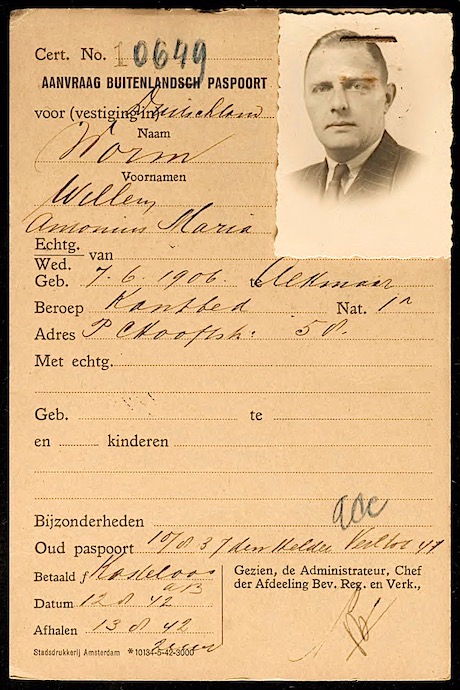 Cert. No. 10649
AANVRAAG BUITENLANDSCH PASPOORT
voor (vestiging in) Duitschland
Naam
Worm
Voornamen
Willem
Antonius Maria
Echtg.
Wed. van
Geb. 7.6.1906. te Alkmaar
Beroep Kantbed Nat. 1a
Adres P C Hooftstr: 58.
Met echtg.
Geb. te
en kinderen
Bijzonderheden
Oud paspoort 10/8 37 den Helder 47
Betaald f Kosteloos
Datum 12 8 42
Afhalen 13 8 42
Gezien, de Administrateur, Chef
der Afdeeling Bev. Reg. en Verk.,
Stadsdrukkerij Amsterdam *10134-5-42-3000